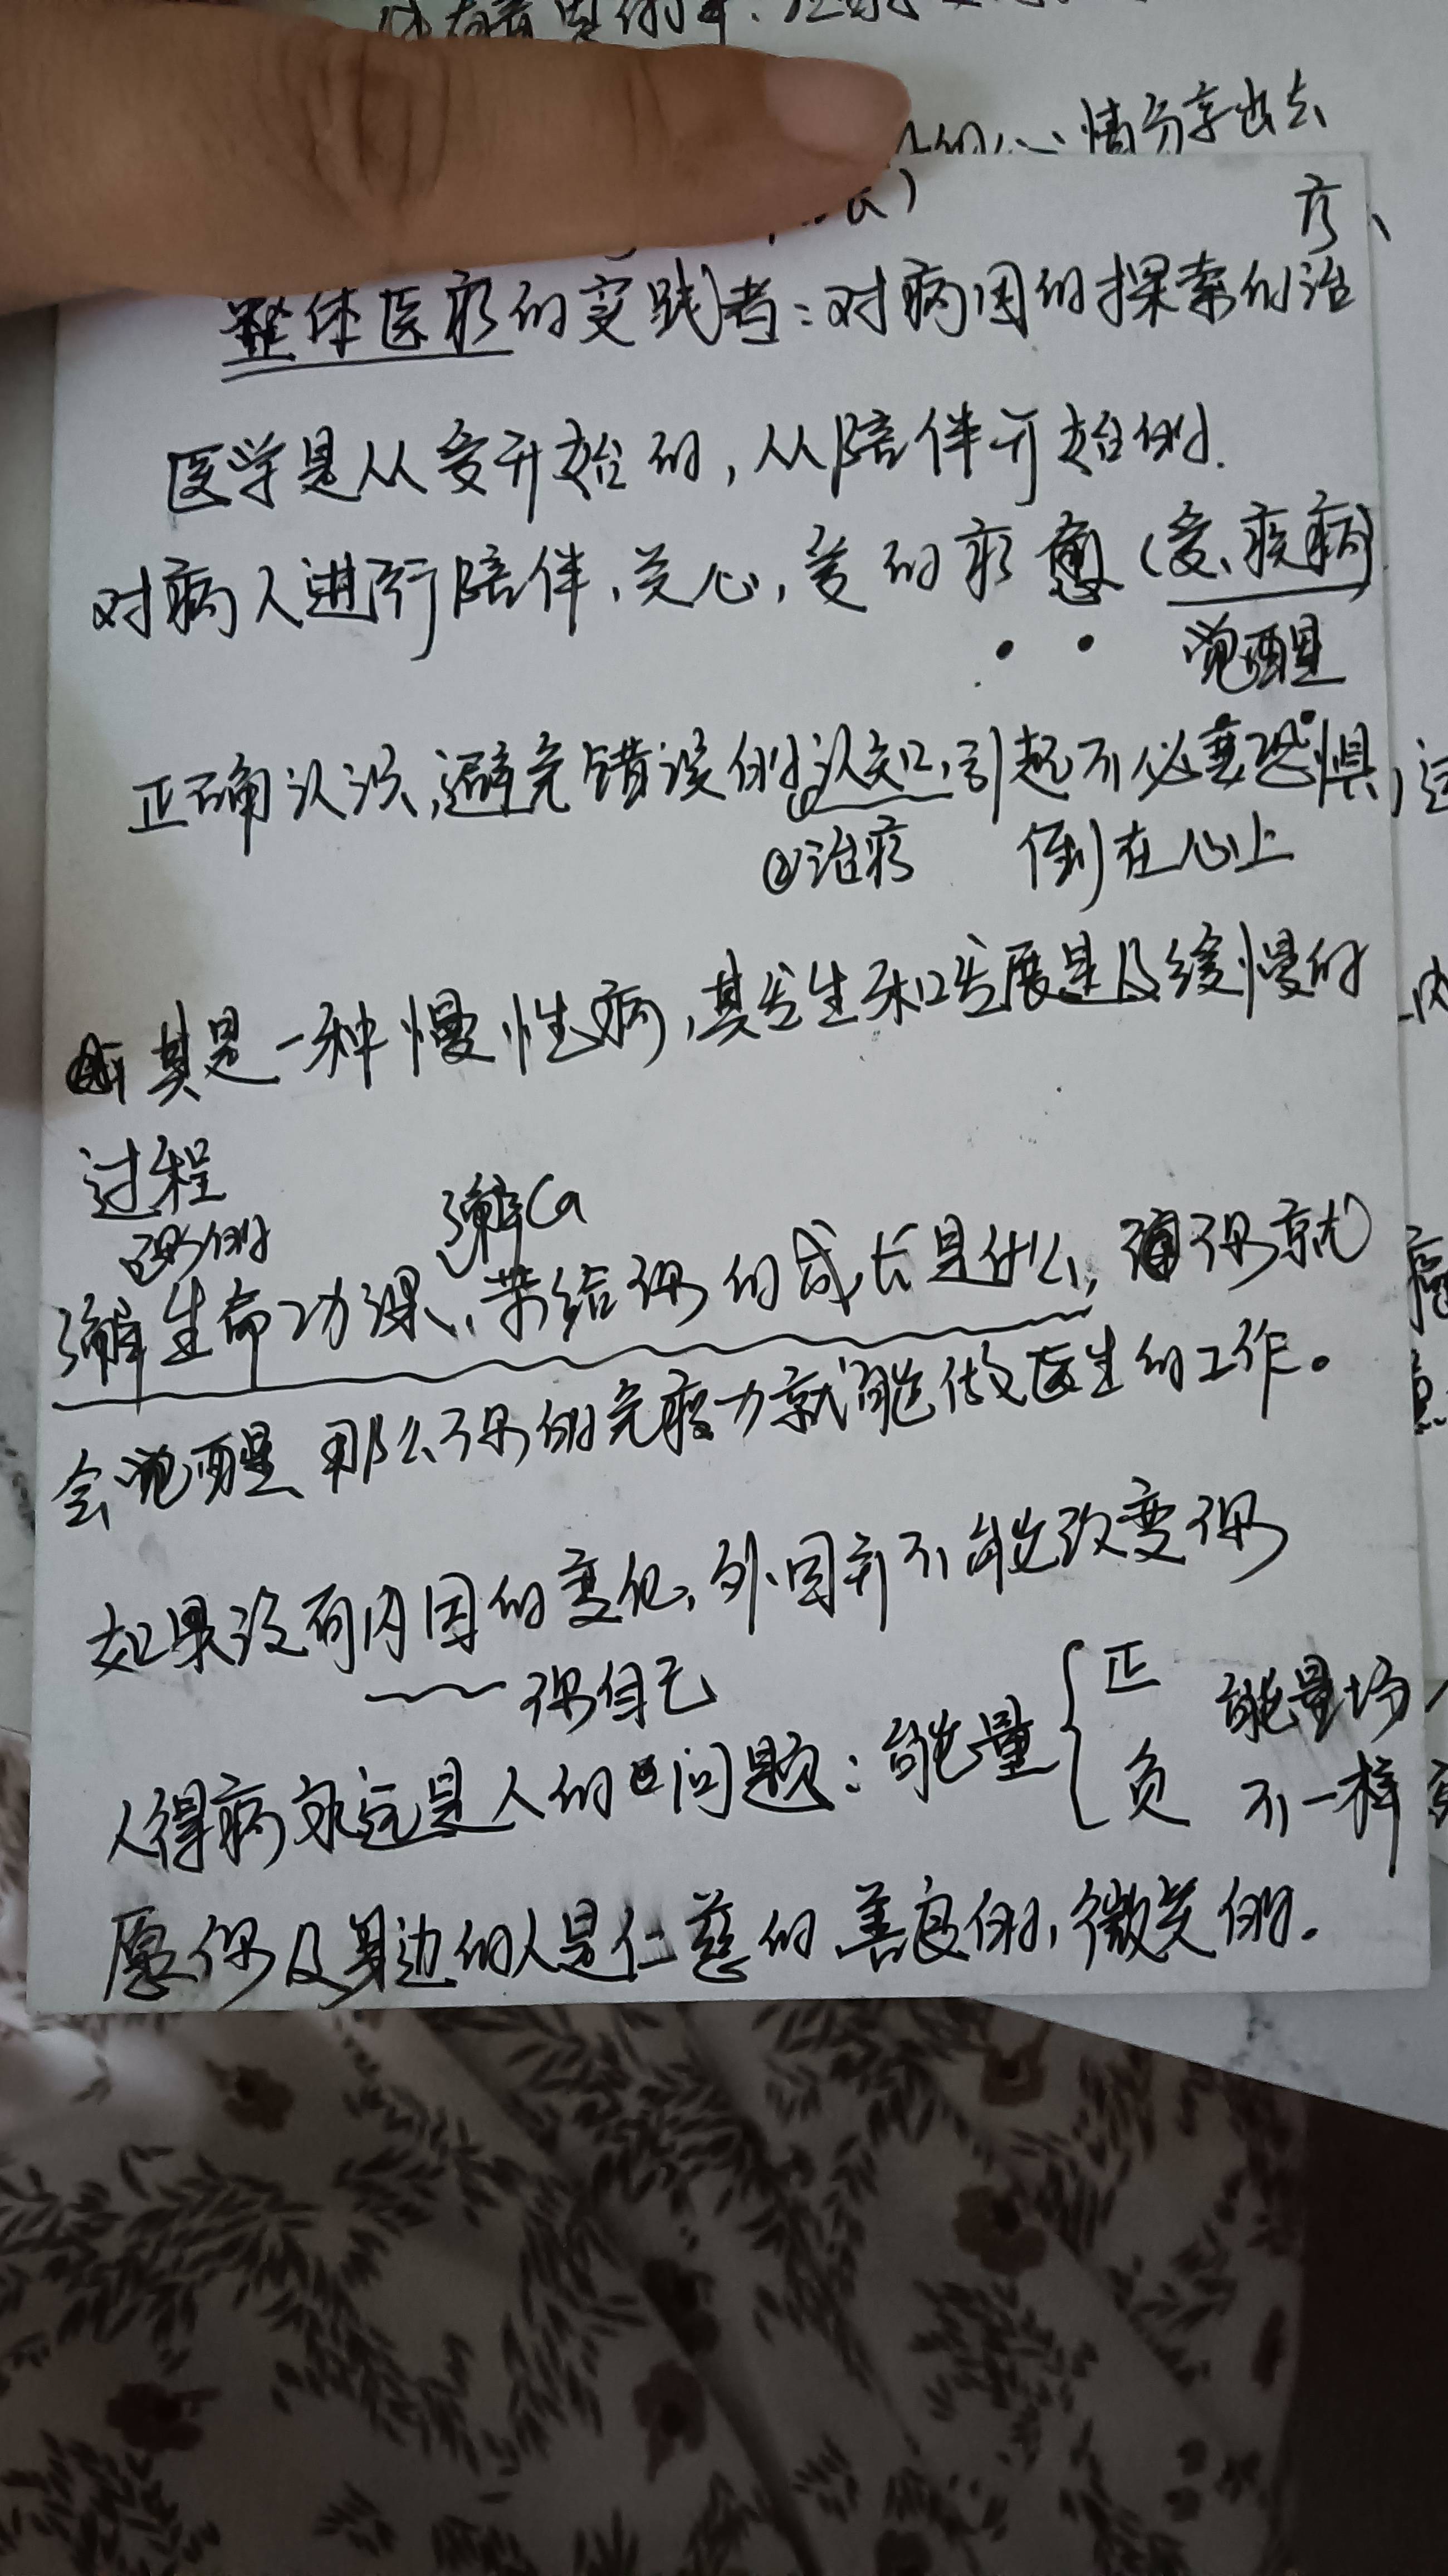 的心情分享出去
疗、
整体医疗的实践者：对病因的探索的治
医学是从爱开始的，从陪伴开始的.
对病人进行陪伴、关心，爱的疗愈（爱、疾病）
觉醒
正确认识，避免错误的认知，引起不必要恐惧，
②治疗 倒在心上
其是一种慢性病，其发生和发展是及缓慢的
过程
你的 了解Ca
了解生命功课、带给你的成长是什么，你就
会觉醒、那么你的免疫力就能做医生的工作。
如果没有内因的变化，外因并不能改变你
你自己
人得病永远是人的问题：能量 { 正 能量场
负 不一样
愿你及身边的人是仁慈的、善良的，微笑的.